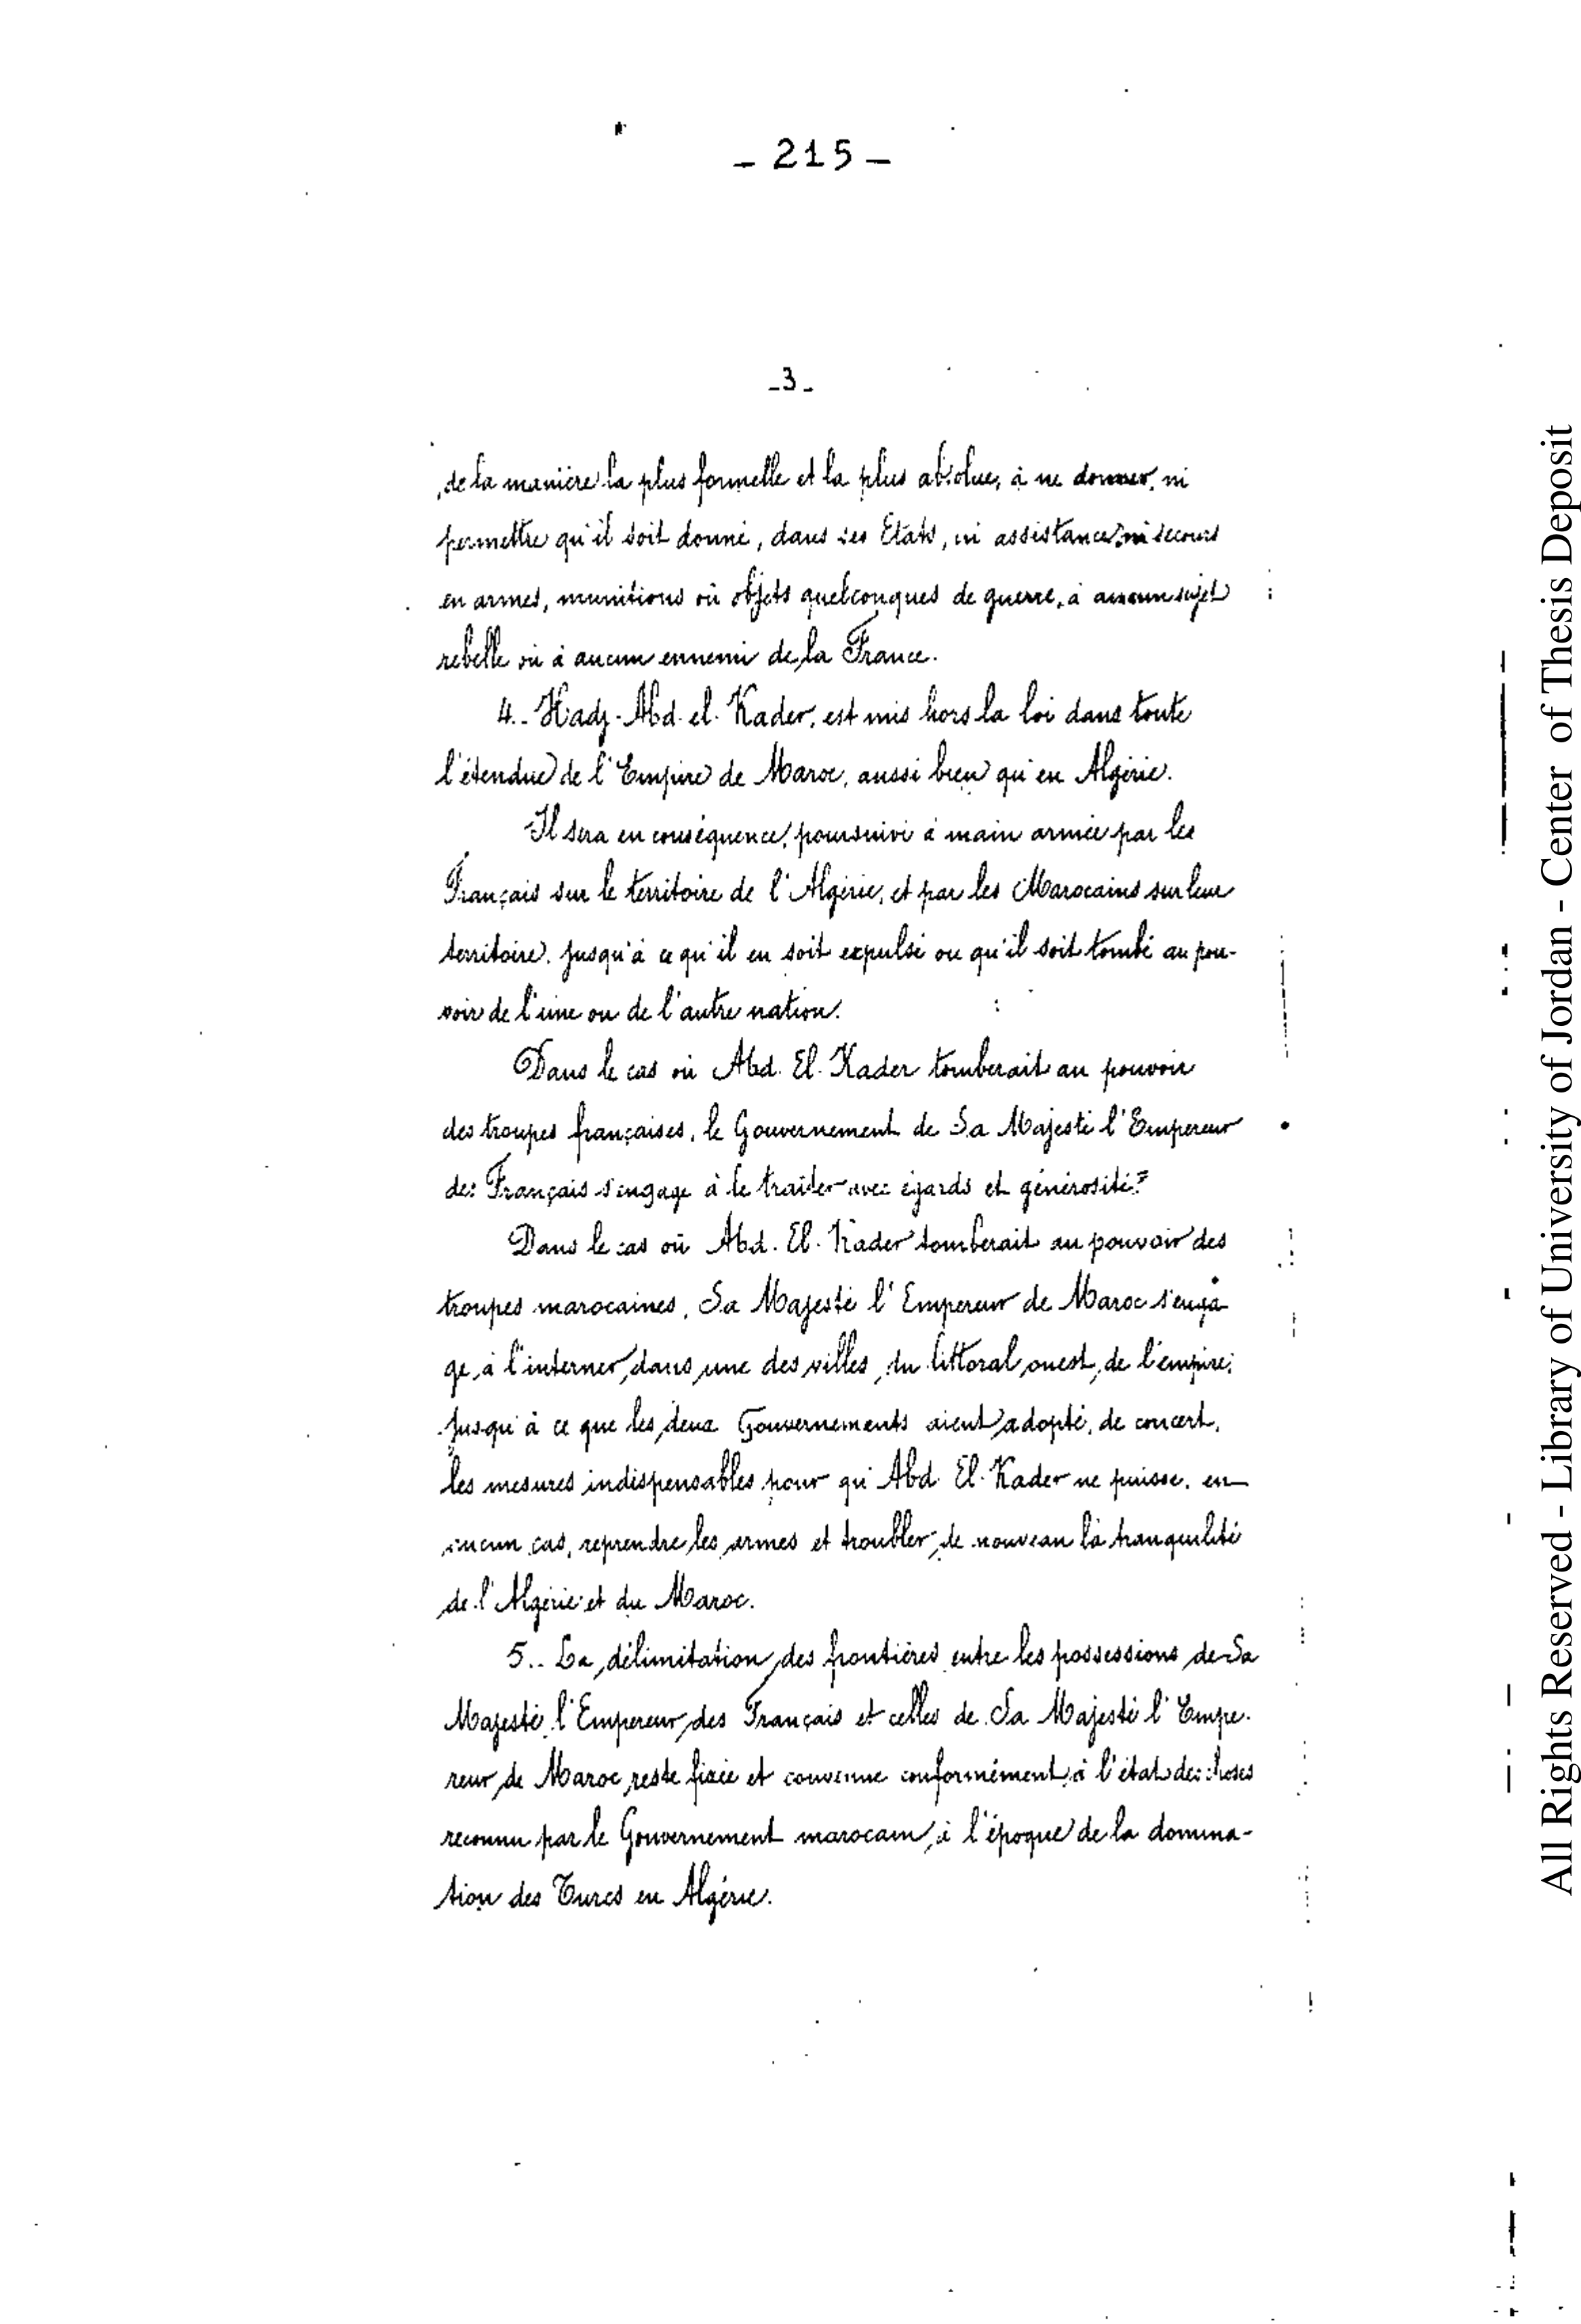 - 215 -
- 3 -
de la manière la plus formelle et la plus absolue, à ne donner, ni
permettre qu'il soit donné, dans ses Etats, ni assistance, ni secours
en armes, munitions où objets quelconques de guerre, à aucun sujet
rebelle où à aucun ennemi de la France.
4.- Hadj-Abd-el-Kader, est mis hors la loi dans toute
l'étendue de l'Empire de Maroc, aussi bien qu'en Algérie.
Il sera en conséquence, poursuivi à main armée par les
Français sur le territoire de l'Algérie, et par les Marocains sur leur
territoire. jusqu'à ce qu'il en soit expulsé ou qu'il soit tombé au pou-
voir de l'une ou de l'autre nation.
Dans le cas où Abd. El. Kader tomberait au pouvoir
des troupes françaises, le Gouvernement de Sa Majesté l'Empereur
des Français s'engage à le traiter avec égards et générosité.
Dans le cas où Abd. El. Kader tomberait au pouvoir des
troupes marocaines, Sa Majesté l'Empereur de Maroc s'enga-
ge, à l'interner, dans une des villes, du littoral ouest, de l'empire,
jusqu'à ce que les deux Gouvernements aient adopté, de concert,
les mesures indispensables pour qu'Abd. El. Kader ne puisse, en
aucun cas, reprendre les armes et troubler, de nouveau la tranquilité
de l'Algérie et du Maroc.
5.. La délimitation des frontières entre les possessions de Sa
Majesté l'Empereur des Français et celles de Sa Majesté l'Empe-
reur de Maroc reste fixée et convenue conformément à l'état des choses
reconnu par le Gouvernement marocain, à l'époque de la domina-
tion des Turcs en Algérie.
All Rights Reserved - Library of University of Jordan - Center of Thesis Deposit